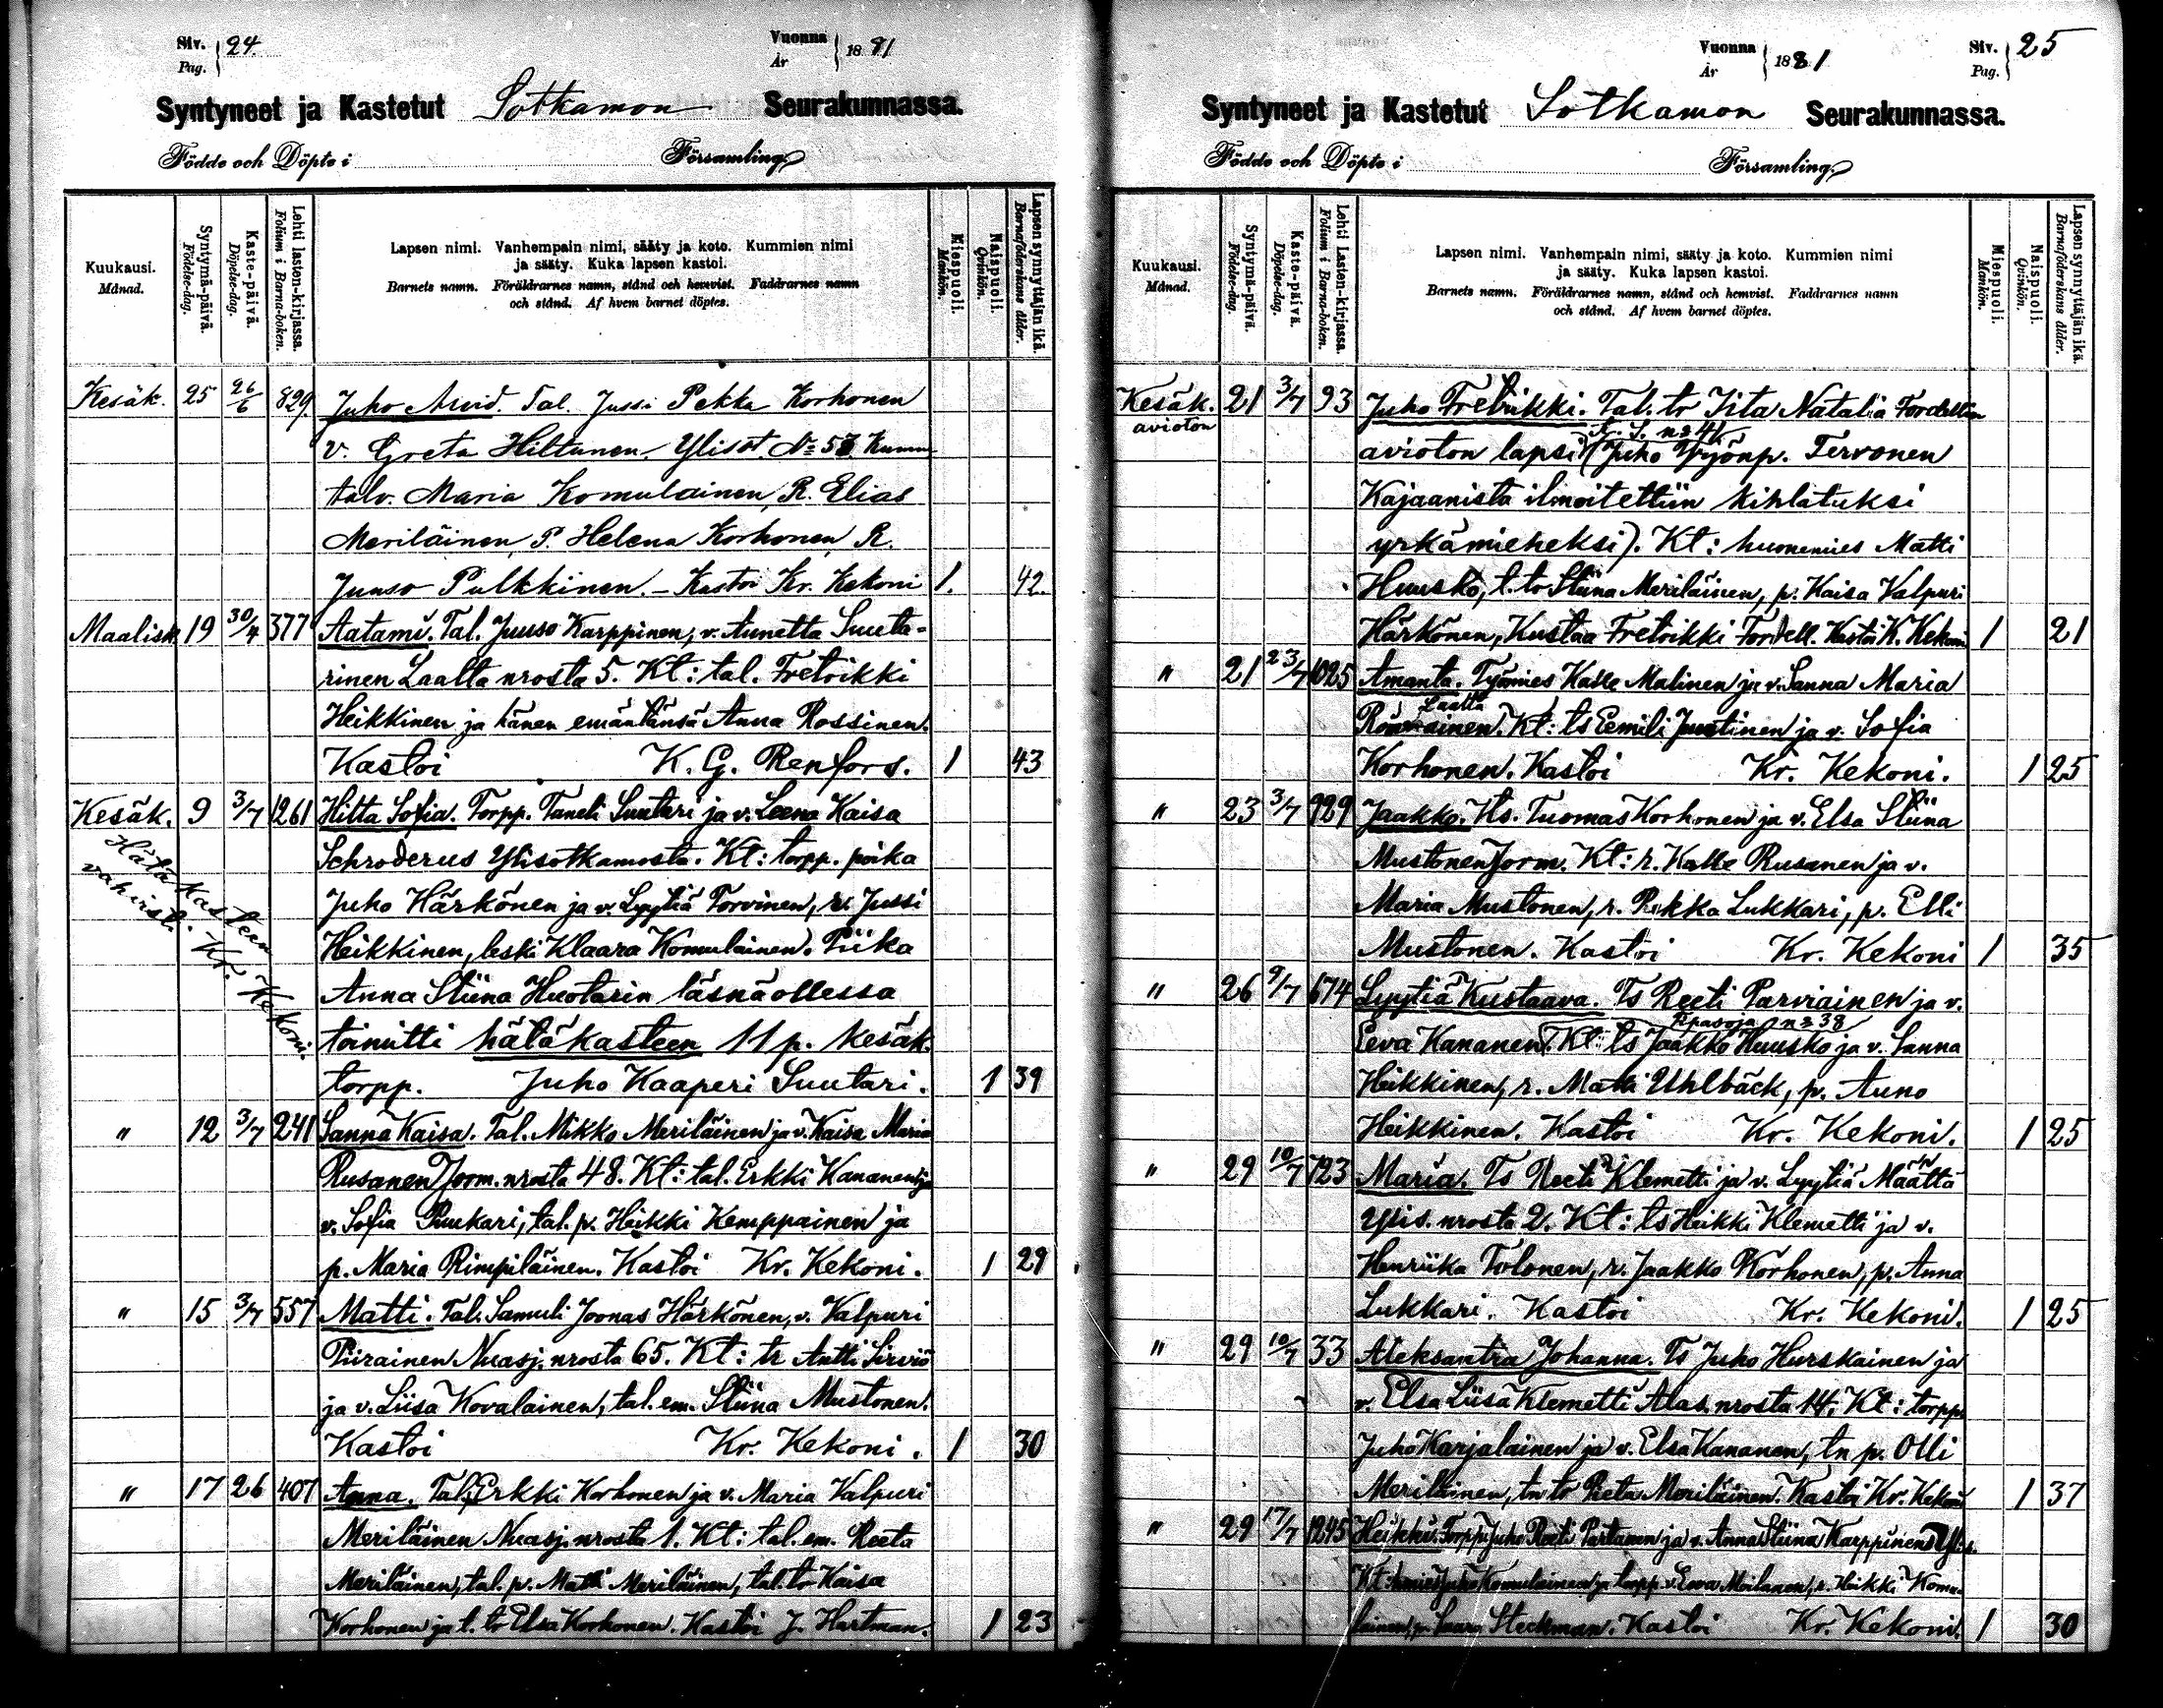 Siv. 24.
Pag.
Vuonna 1881
År
Syntyneet ja Kastetut Sotkamon Seurakunnassa.
Födde och Döpte i Församling.
Kuukausi.
Månad.
Syntymä-päivä.
Födelse-dag.
Kaste-päivä.
Döpelse-dag.
Lehti lasten-kirjassa.
Folium i Barna-boken.
Lapsen nimi. Vanhempain nimi, sääty ja koto. Kummien nimi
ja sääty. Kuka lapsen kastoi.
Barnets namn. Föräldrarnes namn, stånd och hemvist. Faddrarnes namn
och stånd. Af hvem barnet döptes.
Miespuoli.
Mankön.
Naispuoli.
Qvinkön.
Lapsen synnyttäjän ikä.
Barnaföderskans ålder.
Kesäk. 25 26/6 829 Juho Arvid. Tal. Jussi Pekka Korhonen
v. Greta Hiltunen, Ylisot. No 57 Kumm
talv. Maria Komulainen, R. Elias
Meriläinen, P. Helena Korhonen R.
Juuso Pulkkinen. – Kastoi Kr. Kekoni 1. 42.
Maalisk. 19 30/4 377 Aatami. Tal. Juuso Karppinen, v. Annetta Suuta-
rinen Laalta nrosta 5. Kt: tal. Fretrikki
Heikkinen ja hänen emäntänsä Anna Rossinen.
Kastoi K. G. Renfors. 1 43
Kesäk. 9 3/7 1261 Hilta Sofia. Torpp. Taneli Suutari ja v. Leena Kaisa
Schroderus Ylisotkamosta. Kt: torpp. poika
Juho Härkönen ja v. Lyytiä Torvinen, r. Jussi
Heikkinen, leski Klaara Komulainen. Piika
Anna Stiina Huotarin läsnäollessa
toimitti hätäkasteen 11 p. kesäk.
torpp. Juho Kaaperi Suutari. 1 39
Hätäkasteen
vahvisti Kr. Kekoni.
" 12 3/7 241 Sanna Kaisa. Tal. Mikko Meriläinen ja v. Kaisa Maria
Rusanen Jorm. nrosta 48. Kt: tal. Erkki Kananen ja
v. Sofia Puukari, tal. p. Heikki Kemppainen ja
p. Maria Rimpiläinen. Kastoi Kr. Kekoni. 1 29
" 15 3/7 557 Matti. Tal. Samuli Joonas Härkönen, v. Valpuri
Piirainen Nuasj. nrosta 65. Kt: tr Antti Sirviö
ja v. Liisa Kovalainen, tal. em. Stiina Mustonen.
Kastoi Kr. Kekoni. 1 30
" 17 26 407 Anna. Tal. Erkki Korhonen ja v. Maria Valpuri
Meriläinen Nuasj. nrosta 1. Kt: tal. em. Reeta
Meriläinen, tal. p. Matti Meriläinen, tal. tr Kaisa
Korhonen ja t. tr Elsa Korhonen. Kastoi J. Hartman. 1 23
Vuonna 1881
År
Siv. 25
Pag.
Syntyneet ja Kastetut Sotkamon Seurakunnassa.
Födde och Döpte i Församling.
Kuukausi.
Månad.
Syntymä-päivä.
Födelse-dag.
Kaste-päivä.
Döpelse-dag.
Lehti Lasten-kirjassa.
Folium i Barna-boken.
Lapsen nimi. Vanhempain nimi, sääty ja koto. Kummien nimi
ja sääty. Kuka lapsen kastoi.
Barnets namn. Föräldrarnes namn, stånd och hemvist. Faddrarnes namn
och stånd. Af hvem barnet döptes.
Miespuoli.
Mankön.
Naispuoli.
Qvinkön.
Lapsen synnyttäjän ikä.
Barnaföderskans ålder.
Kesäk. 21 3/7 93 Juho Fretrikki. Tal. tr Iita Natalia Fordellin
avioton
n:o 41.
avioton lapsi (Juho Yrjönp. Tervonen
Kajaanista ilmoitettiin kihlatuksi
yrkämieheksi). Kt: huonemies Matti
Huusko, t. tr Stiina Meriläinen, p. Kaisa Valpuri
Härkönen, Kustaa Fretrikki Fordell. Kastoi K. Kekoni 1 21
" 21 23/7 1025 Amanta. Työmies Kalle Malinen ja v. Sanna Maria
Laalta
Kt: ts Eemili Juustinen ja v. Sofia
Korhonen. Kastoi Kr. Kekoni. 1 25
" 23 3/7 929 Jaakko. Ks. Tuomas Korhonen ja v. Elsa Stiina
Mustonen Jorm. Kt: r. Kalle Rusanen ja v.
Maria Mustonen, r. Pekka Lukkari, p. Elli
Mustonen. Kastoi Kr. Kekoni 1 35
" 26 9/7 674 Lyytiä Kustaava. Ts Reeti Parviainen ja v.
n:o 38
Eeva Kananen. Kt: ts Jaakko Huusko ja v. Sanna
Heikkinen, r. Matti Uhlbäck, p. Anno
Heikkinen. Kastoi Kr. Kekoni. 1 25
" 29 10/7 723 Maria. Ts Reeti Klemetti ja v. Lyytiä Määttä
Ylis. nrosta 2. Kt: ts Heikki Klemetti ja v.
Henriika Tolonen, r. Jaakko Korhonen, p. Anna
Lukkari. Kastoi Kr. Kekoni. 1 25
" 29 10/7 33 Aleksantra Johanna. Ts Juho Hurskainen ja
v. Elsa Liisa Klemetti Alas. nrosta 14. Kt: torpp.
Juho Karjalainen ja v. Elsa Kananen, tn p. Olli
Meriläinen, tn tr Reeta Meriläinen. Kastoi Kr. Kekoni 1 37
" 29 17/7 1245 Heikki. Torpp. Juho Reeti Partanen ja v. Anna Stiina Karppinen Ylis.
Kt: Juho Komulainen ja torpp. v. Eeva Moilanen, r. Heikki Komu-
lainen, p. Saara Steckman. Kastoi Kr. Kekoni. 1 30